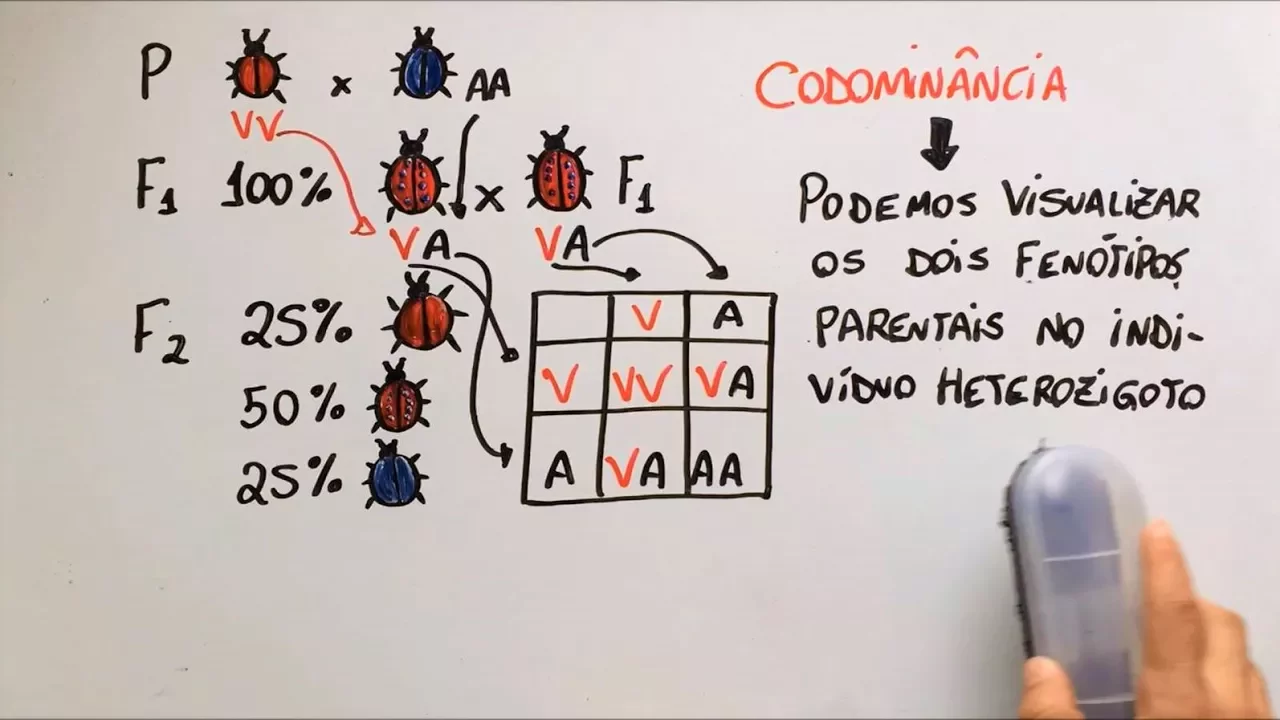 P x AA
VV
F1 100% x F1
VA VA
F2 25%
50%
25%
V A
V VV VA
A VA AA
CODOMINÂNCIA
PODEMOS VISUALIZAR
OS DOIS FENÓTIPOS
PARENTAIS NO INDI-
VÍDUO HETEROZIGOTO